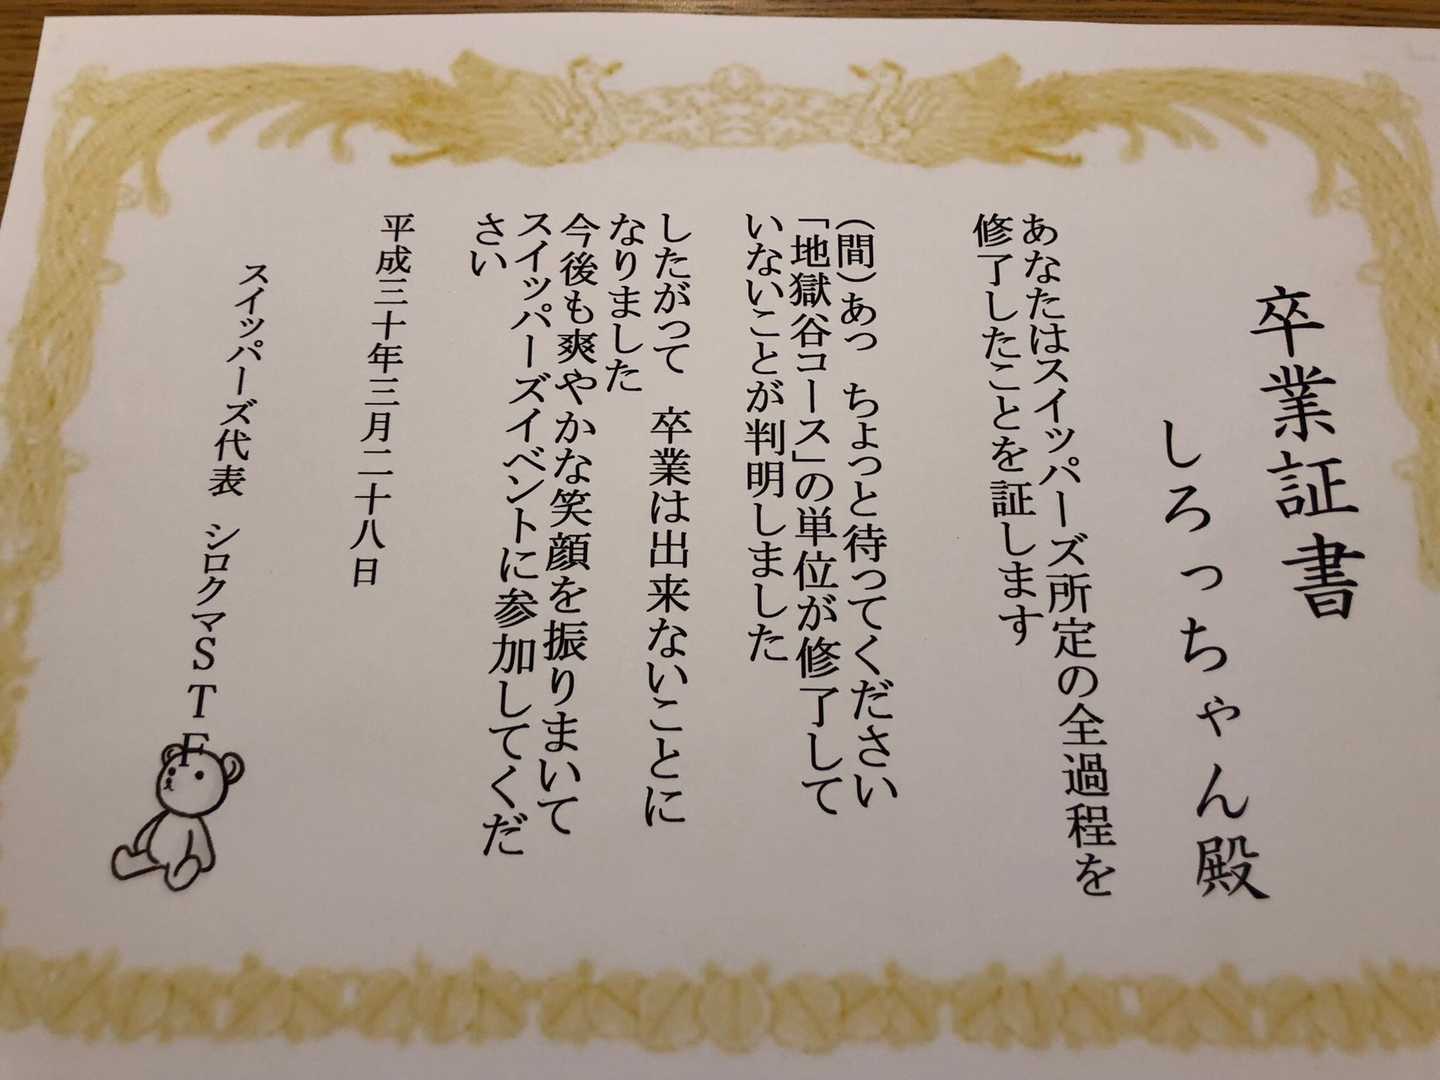 卒業証書
しろっちゃん殿
あなたはスイッパーズ所定の全過程を
修了したことを証します
（間）あっ　ちょっと待ってください
「地獄谷コース」の単位が修了して
いないことが判明しました
したがって　卒業は出来ないことに
なりました
今後も爽やかな笑顔を振りまいて
スイッパーズイベントに参加してくだ
さい
平成三十年三月二十八日
スイッパーズ代表　シロクマＳＴＦ